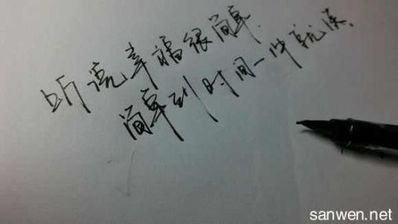 听说幸福很简单,
简单到时间一冲就淡、
sanwen.net